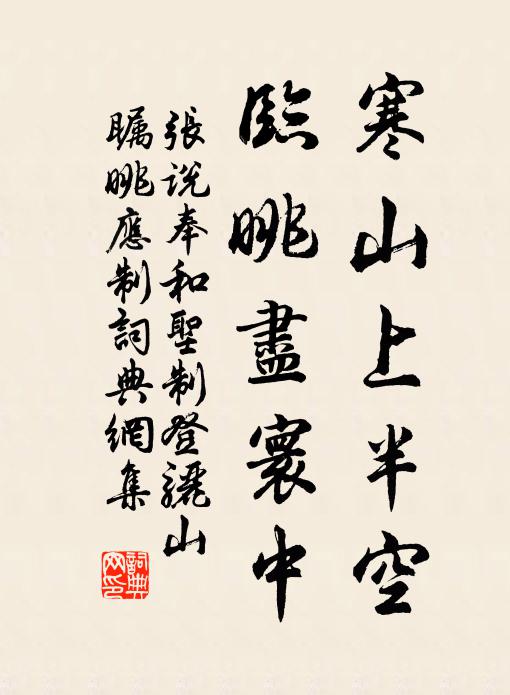 寒山上半空
臨眺盡寰中
張説奉和聖制登驪山
矚眺應制詞典網集
詞典
网印